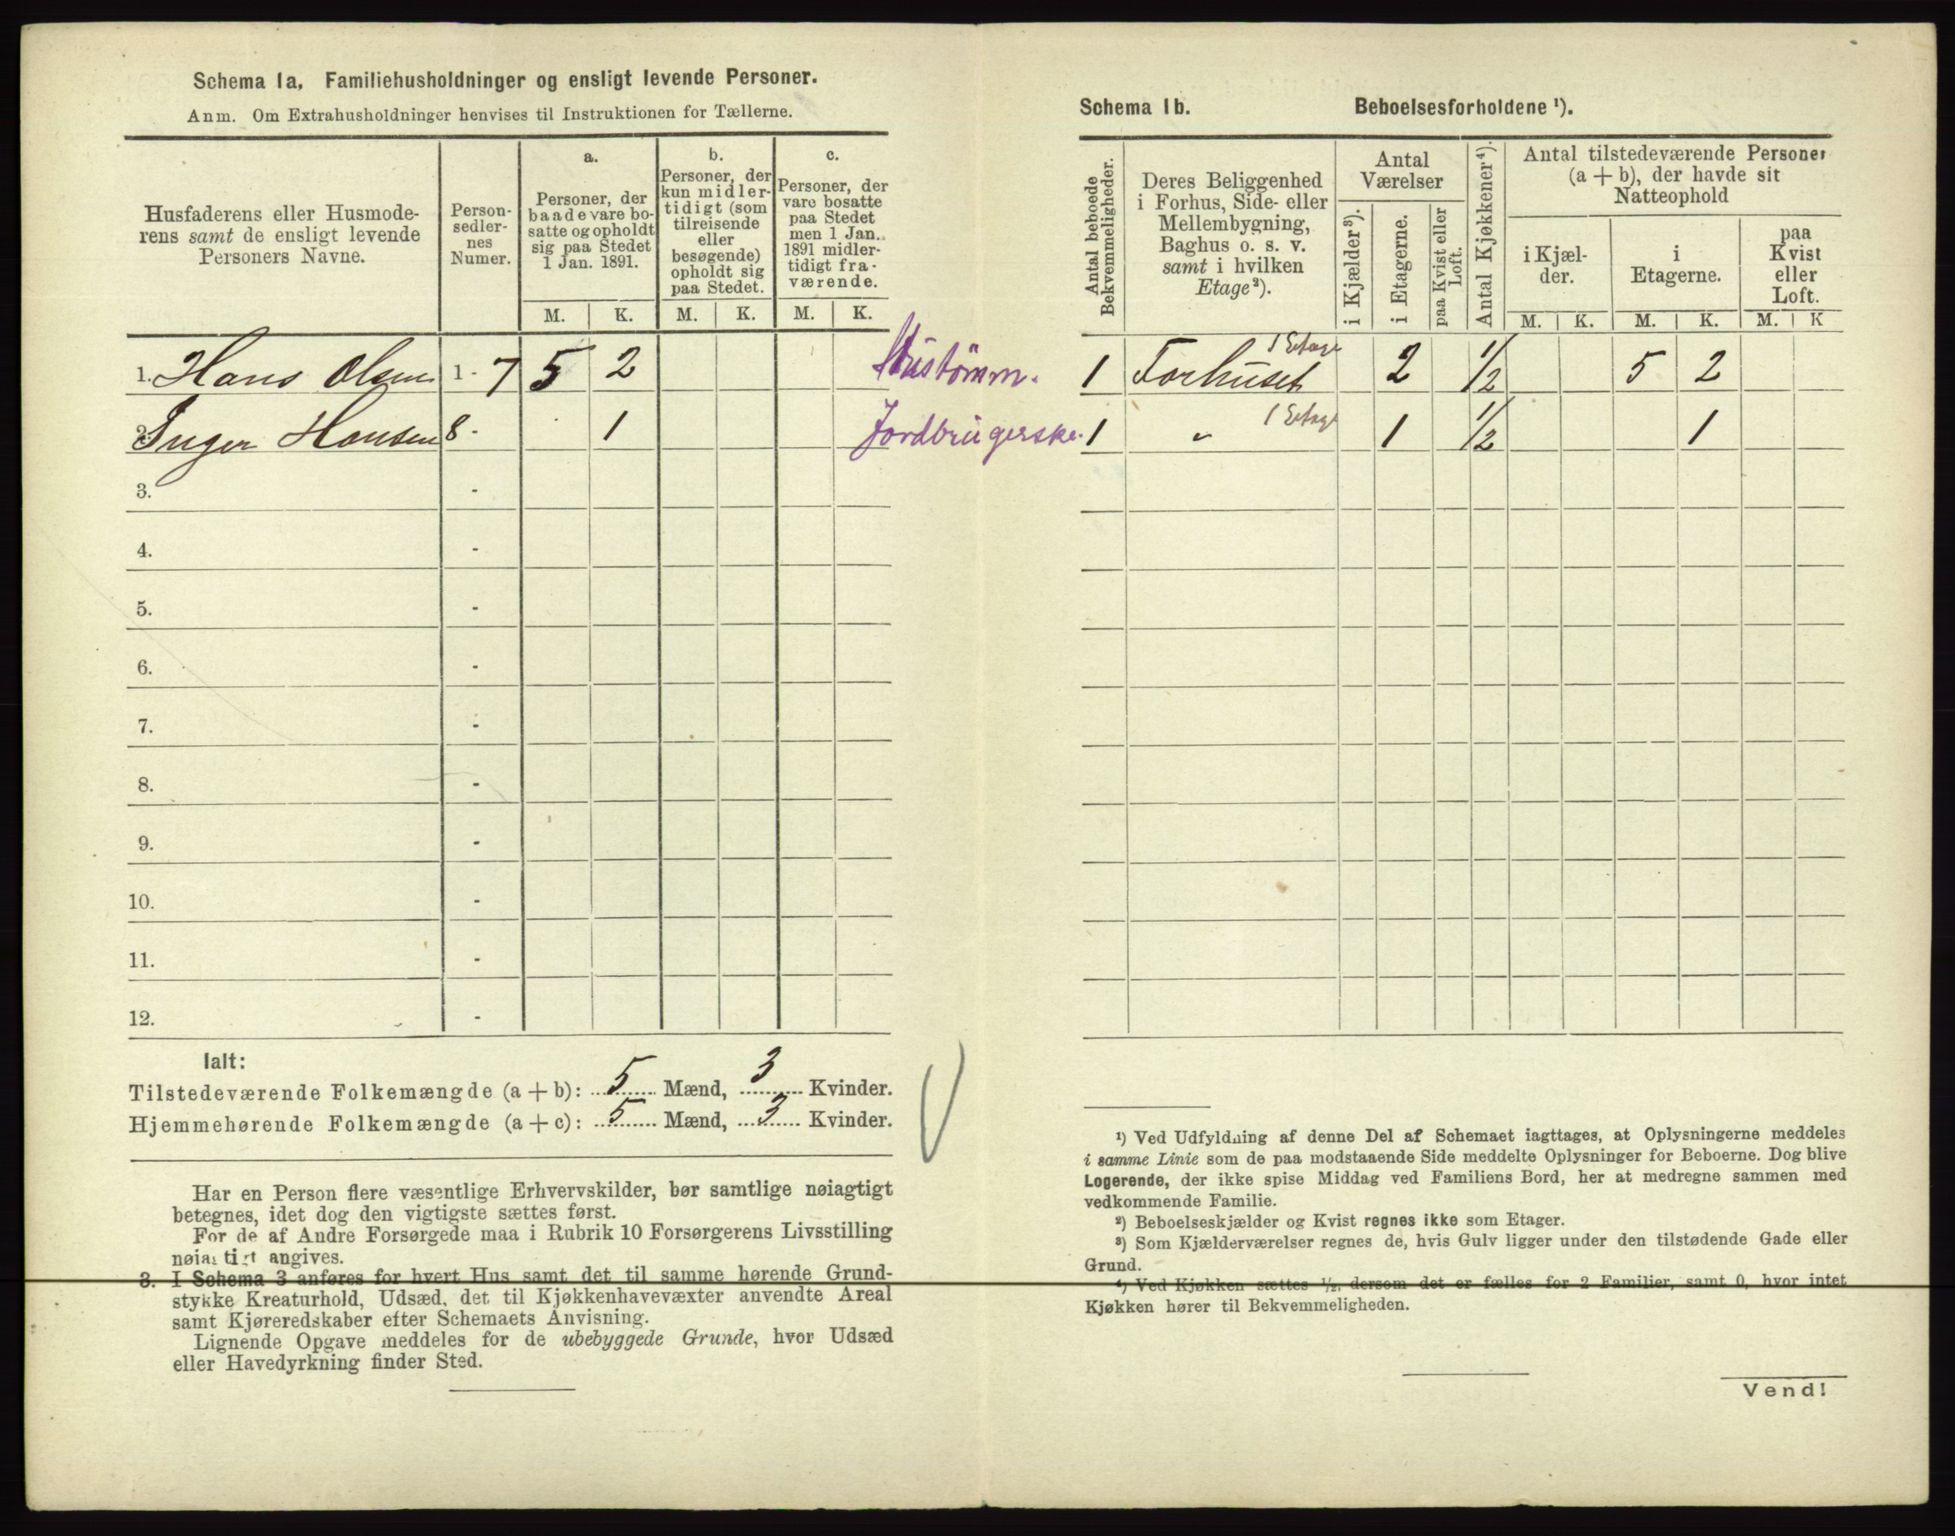 Schema 1a. Familiehusholdninger og ensligt levende Personer.
Anm. Om Extrahusholdninger henvises til Instruktionen for Tællerne.
Husfaderens eller Husmode-
rens samt de ensligt levende
Personers Navne.
Person-
sedler-
nes
Numer.
a.
Personer, der
baade vare bo-
satte og opholdt
sig paa Stedet
1 Jan. 1891.
b.
Personer, der
kun midler-
tidigt (som
tilreisende
eller
besøgende)
opholdt sig
paa Stedet.
c.
Personer, der
vare bosatte
paa Stedet
men 1 Jan.
1891 midler-
tidigt fra-
værende.
M. K. M. K. M. K.
1. Hans Olsen 1 - 7 5 2 Hustømm.
2. Inger Hansen 8 - 1 Jordbrugerske.
3. -
4. -
5. -
6. -
7. -
8. -
9. -
10. -
11. -
12. -
Ialt:
Tilstedeværende Folkemængde (a + b): 5 Mænd, 3 Kvinder.
Hjemmehørende Folkemængde (a + c): 5 Mænd, 3 Kvinder.
Har en Person flere væsentlige Erhvervskilder, bør samtlige nøiagtigt
betegnes, idet dog den vigtigste sættes først.
For de af Andre Forsørgede maa i Rubrik 10 Forsørgerens Livsstilling
nøiagtigt angives.
3. I Schema 3 anføres for hvert Hus samt det til samme hørende Grund-
stykke Kreaturhold, Udsæd, det til Kjøkkenhavevæxter anvendte Areal
samt Kjøreredskaber efter Schemaets Anvisning.
Lignende Opgave meddeles for de ubebyggede Grunde, hvor Udsæd
eller Havedyrkning finder Sted.
Schema 1b. Beboelsesforholdene ¹).
Antal beboede
Bekvemmeligheder.
Deres Beliggenhed
i Forhus, Side- eller
Mellembygning,
Baghus o. s. v.
samt i hvilken
Etage²).
Antal
Værelser
i Kjælder³).
i Etagerne.
paa Kvist eller
Loft.
Antal Kjøkkener⁴).
Antal tilstedeværende Personer
(a + b), der havde sit
Natteophold
i Kjæl-
der.
i
Etagerne.
paa
Kvist
eller
Loft.
M. K. M. K. M. K
1 Forhuset 1 Etage 2 1/2 5 2
1 " 1 Etage 1 1/2 1
¹) Ved Udfyldning af denne Del af Schemaet iagttages, at Oplysningerne meddeles
i samme Linie som de paa modstaaende Side meddelte Oplysninger for Beboerne. Dog blive
Logerende, der ikke spise Middag ved Familiens Bord, her at medregne sammen med
vedkommende Familie.
²) Beboelseskjælder og Kvist regnes ikke som Etager.
³) Som Kjælderværelser regnes de, hvis Gulv ligger under den tilstødende Gade eller
Grund.
⁴) Ved Kjøkken sættes ½, dersom det er fælles for 2 Familier, samt 0, hvor intet
Kjøkken hører til Bekvemmeligheden.
Vend!